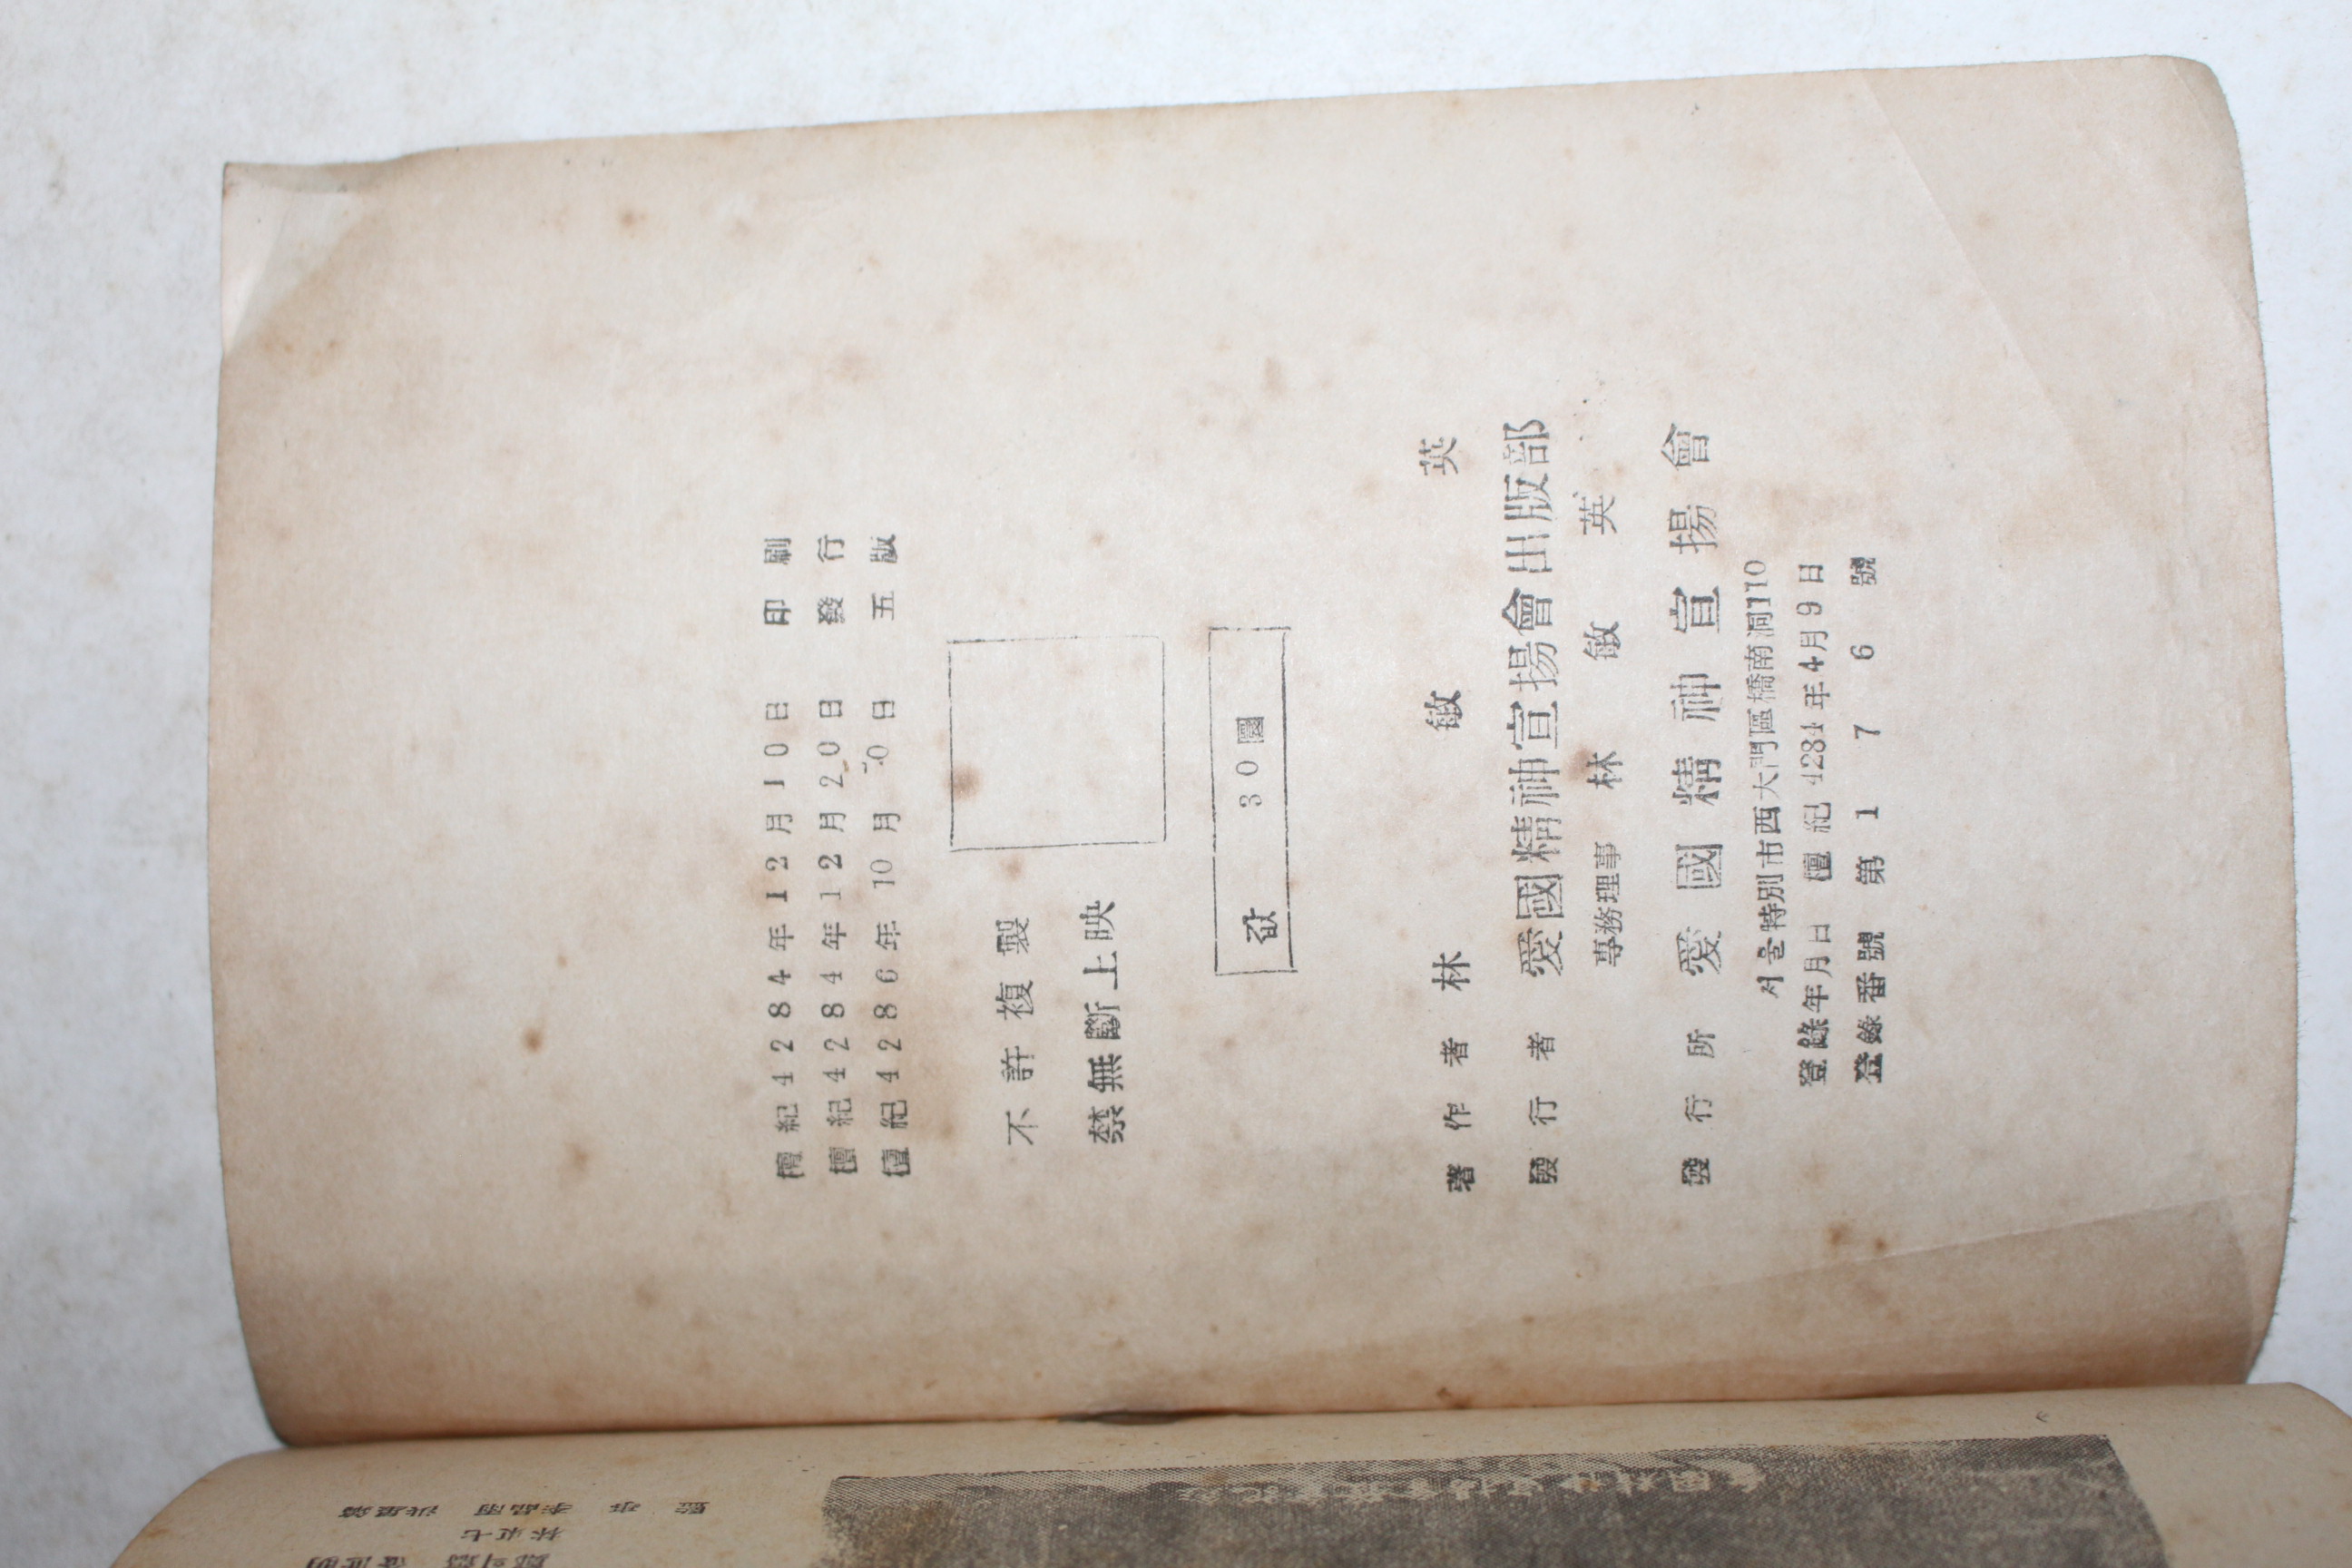 檀紀4284年12月10日 印刷
檀紀4284年12月20日 發行
檀紀4286年10月 日 五版
不許複製
禁無斷上映
값 30圜
著作者 林敏英
發行者 愛國精神宣揚會出版部
專務理事 林敏英
發行所 愛國精神宣揚會
서울特別市西大門區橋南洞110
登錄年月日 檀紀4284年4月9日
登錄番號 第1776號